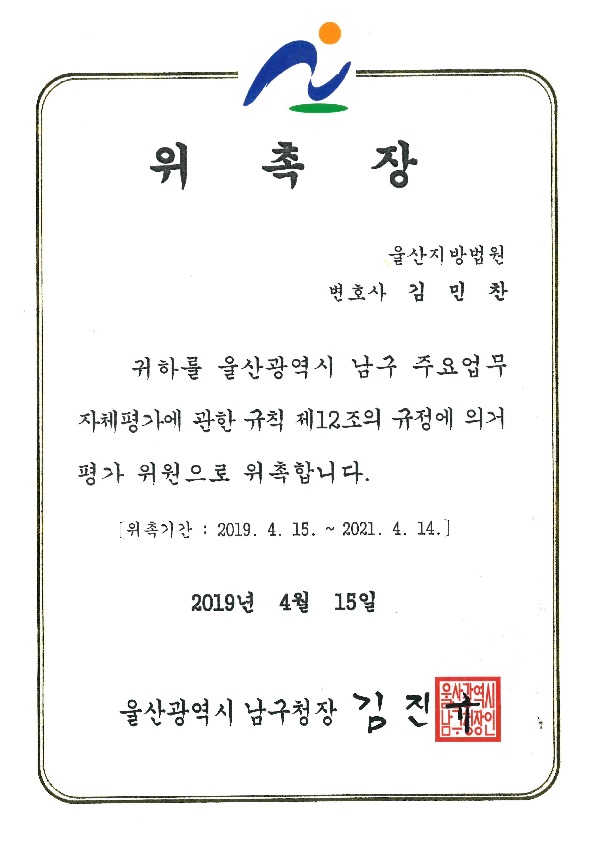 위 촉 장
울산지방법원
변호사 김 민 찬
귀하를 울산광역시 남구 주요업무
자체평가에 관한 규칙 제12조의 규정에 의거
평가 위원으로 위촉합니다.
[위촉기간 : 2019. 4. 15. ~ 2021. 4. 14.]
2019년 4월 15일
울산광역시 남구청장 김 진 규
울산광역시
남구청장인